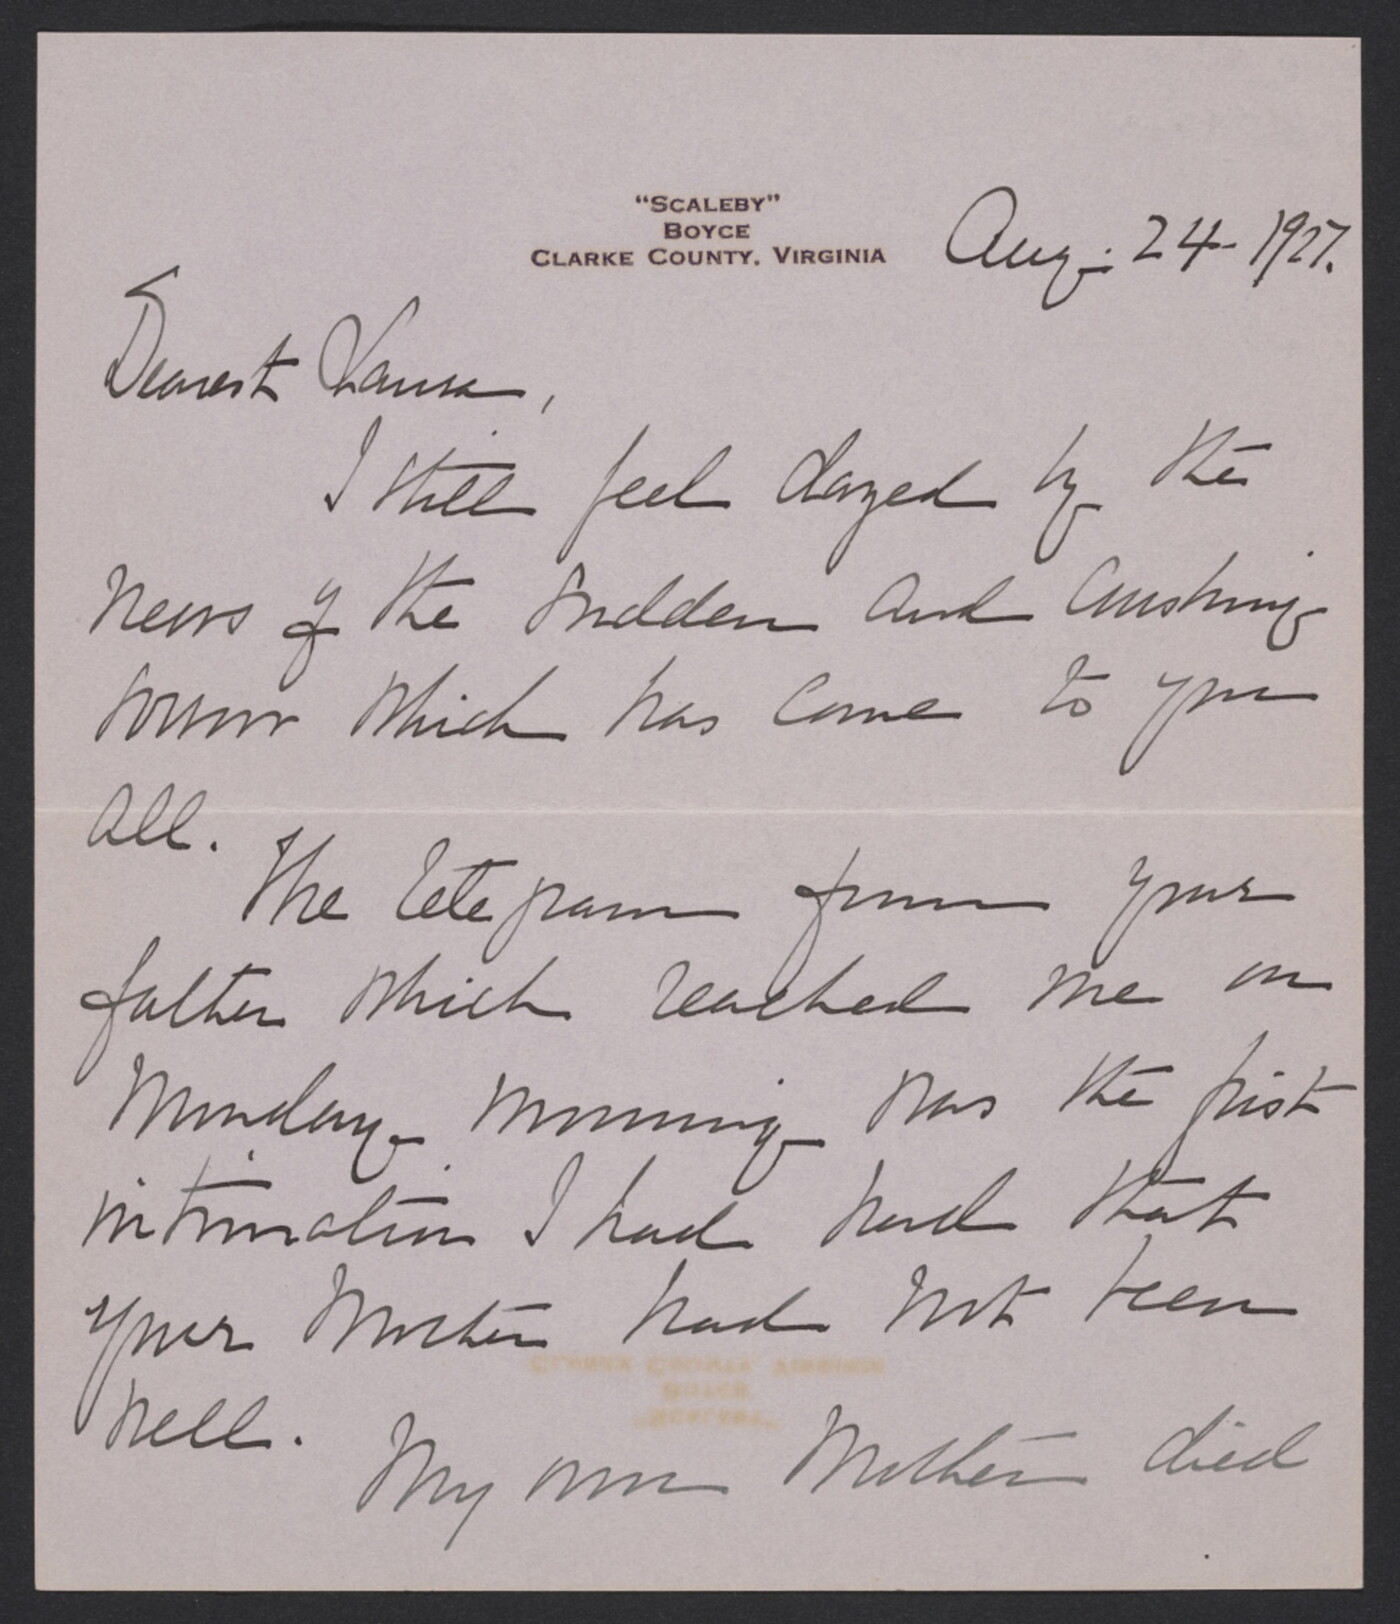 "SCALEBY"
BOYCE
CLARKE COUNTY, VIRGINIA
Aug. 24 - 1927.
Dearest Laura,
I still feel dazed by the
news of the sudden and crushing
sorrow which has come to you
all.
The telegram from your
father which reached me on
Monday morning was the first
intimation I had had that
your Mother had not been
well.
My own Mother died